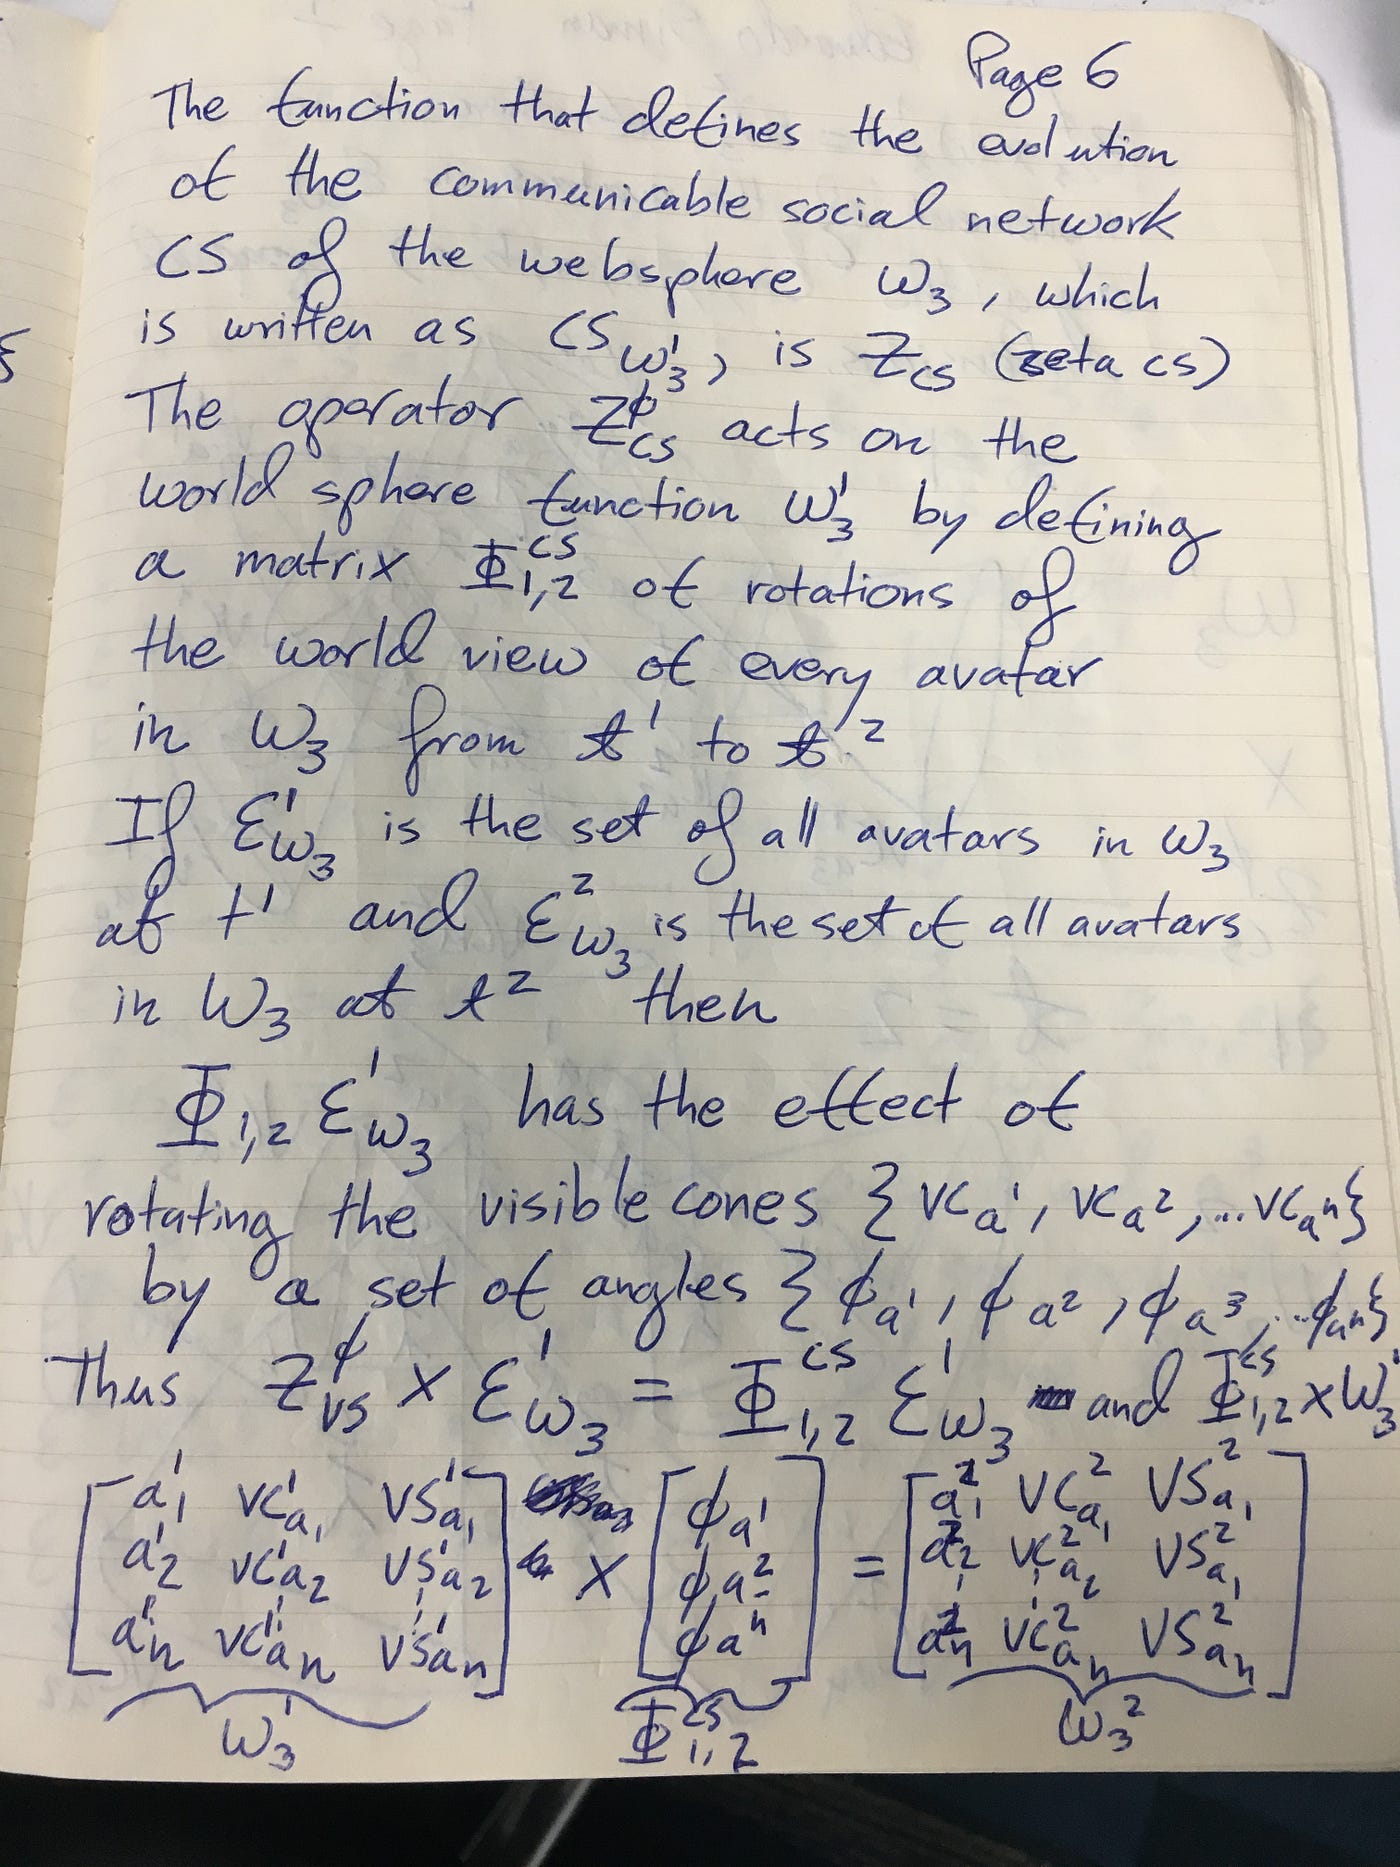 Page 6
The function that defines the evolution
of the communicable social network
CS of the websphere ω₃, which
is written as CS_ω₃¹, is Z_CS (zeta cs)
The operator Z^ϕ_CS acts on the
world sphere function ω₃¹ by defining
a matrix Φ₁,₂^CS of rotations of
the world view of every avatar
in ω₃ from t¹ to t²
If Ɛ¹_ω₃ is the set of all avatars in ω₃
at t¹ and Ɛ²_ω₃ is the set of all avatars
in ω₃ at t² then
Φ₁,₂ Ɛ¹_ω₃ has the effect of
rotating the visible cones {VC_a¹, VC_a², ... VC_aⁿ}
by a set of angles {ϕ_a¹, ϕ_a², ϕ_a³, ... ϕ_aⁿ}
Thus Z^ϕ_VS × Ɛ¹_ω₃ = Φ₁,₂^CS Ɛ¹_ω₃ and Φ₁,₂^CS × ω₃¹
[a₁¹ VC¹_a₁ VS¹_a₁] [ϕ_a¹] [a₁² VC²_a₁ VS²_a₁]
[a₂¹ VC¹_a₂ VS¹_a₂] × [ϕ_a²] = [a₂² VC²_a₂ VS²_a₁]
[aₙ¹ VC¹_aₙ VS¹_aₙ] [ϕ_aⁿ] [aₙ² VC²_aₙ VS²_aₙ]
ω₃¹ Φ₁,₂^CS ω₃²